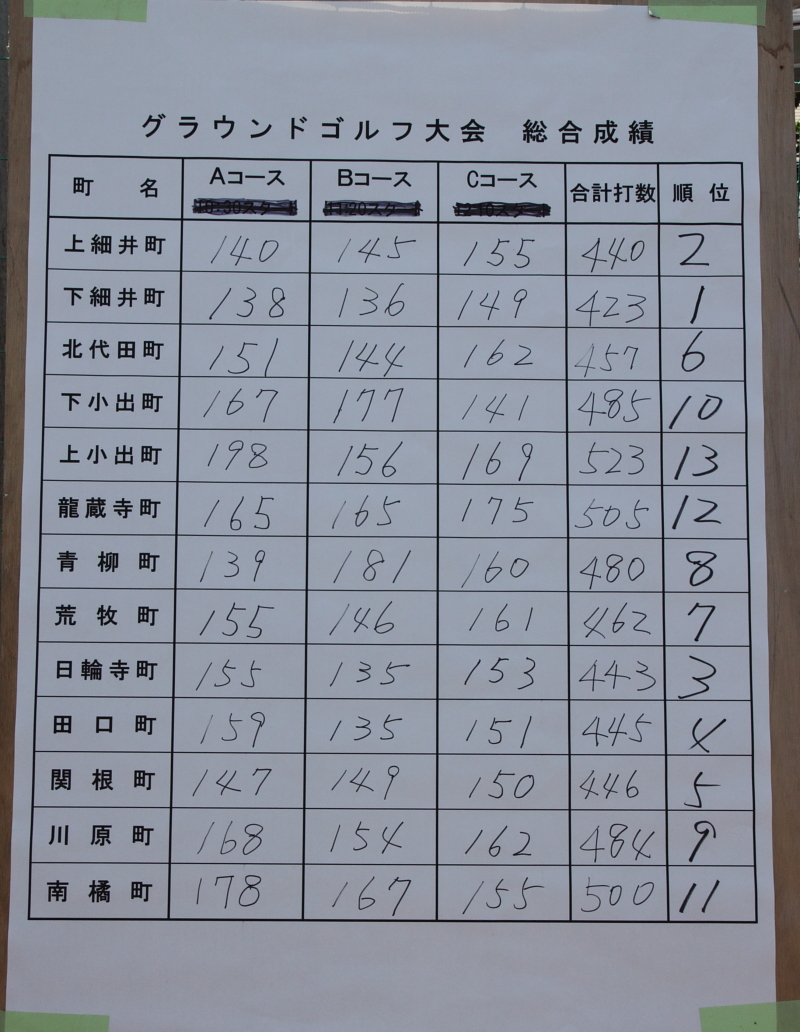 グラウンドゴルフ大会 総合成績
町名 Aコース Bコース Cコース 合計打数 順位
上細井町 140 145 155 440 2
下細井町 138 136 149 423 1
北代田町 151 144 162 457 6
下小出町 167 177 141 485 10
上小出町 198 156 169 523 13
龍蔵寺町 165 165 175 505 12
青柳町 139 181 160 480 8
荒牧町 155 146 161 462 7
日輪寺町 155 135 153 443 3
田口町 159 135 151 445 4
関根町 147 149 150 446 5
川原町 168 154 162 484 9
南橘町 178 167 155 500 11